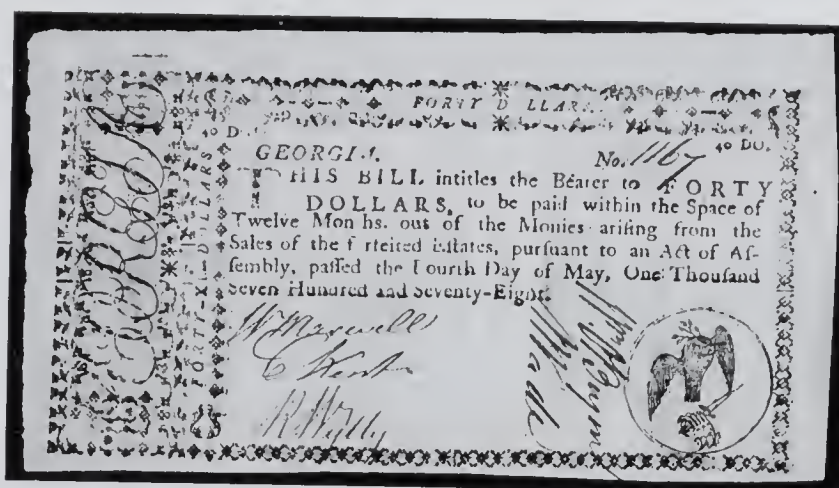 FORTY D LLARS.
40 DO
40 DO.
GEORGIA.
No. 1167
THIS BILL intitles the Bearer to FORTY
DOLLARS, to be paid within the Space of
Twelve Mon hs. out of the Monies ariſing from the
Sales of the f rfeited Eſtates, purſuant to an Act of Aſ-
ſembly, paſſed the Fourth Day of May, One Thouſand
Seven Hundred and Seventy-Eight.
W Maxwell
C Kent
R Wylly
Wade
FORTY DOLLARS